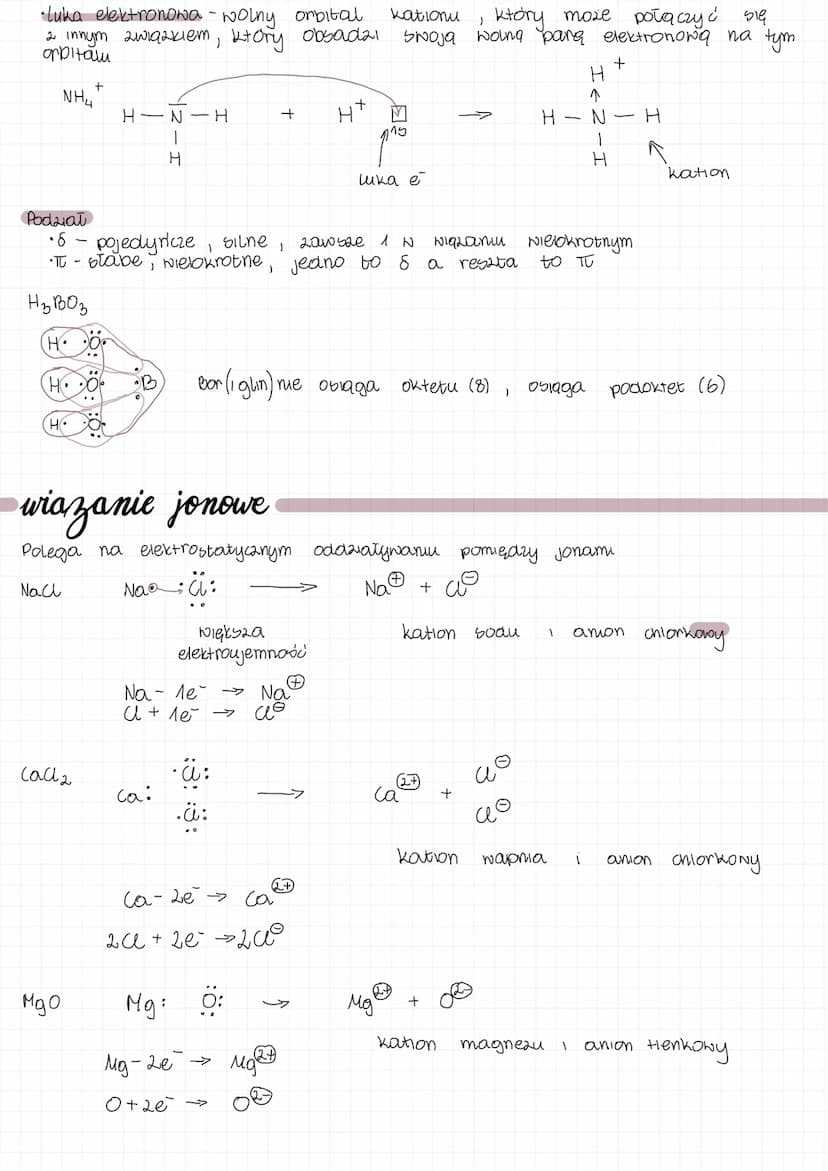 ·luka elektronowa - wolny orbital kationu, który może połączyć się
z innym związkiem, który obsadzi swoją wolną parę elektronową na tym
orbitalu
NH₄⁺
H⁺
↑
H — N — H + H⁺ → H — N — H
| 1s |
H H
luka e⁻ kation
Podział
·δ - pojedyńcze, silne, zawsze 1 w wiązaniu wielokrotnym
·π - słabe, wielokrotne, jedno to δ a reszta to π
H₃BO₃
H· ·O
H· ·O· ·B Bor (i glin) nie osiąga oktetu (8), osiąga podoktet (6)
H· ·O
wiązanie jonowe
Polega na elektrostatycznym oddziaływaniu pomiędzy jonami
NaCl Na· ·Cl: → Na⊕ + Cl⊖
większa kation sodu i anion chlorkowy
elektroujemność
Na - 1e⁻ → Na⊕
Cl + 1e⁻ → Cl⊖
CaCl₂ ·Cl: Cl⊖
Ca: → Ca²⁺ +
·Cl: Cl⊖
kation wapnia i anion chlorkowy
Ca - 2e⁻ → Ca²⁺
2Cl + 2e⁻ → 2Cl⊖
MgO Mg: O: → Mg²⁺ + O²⁻
kation magnezu i anion tlenkowy
Mg - 2e⁻ → Mg²⁺
O + 2e⁻ → O²⁻